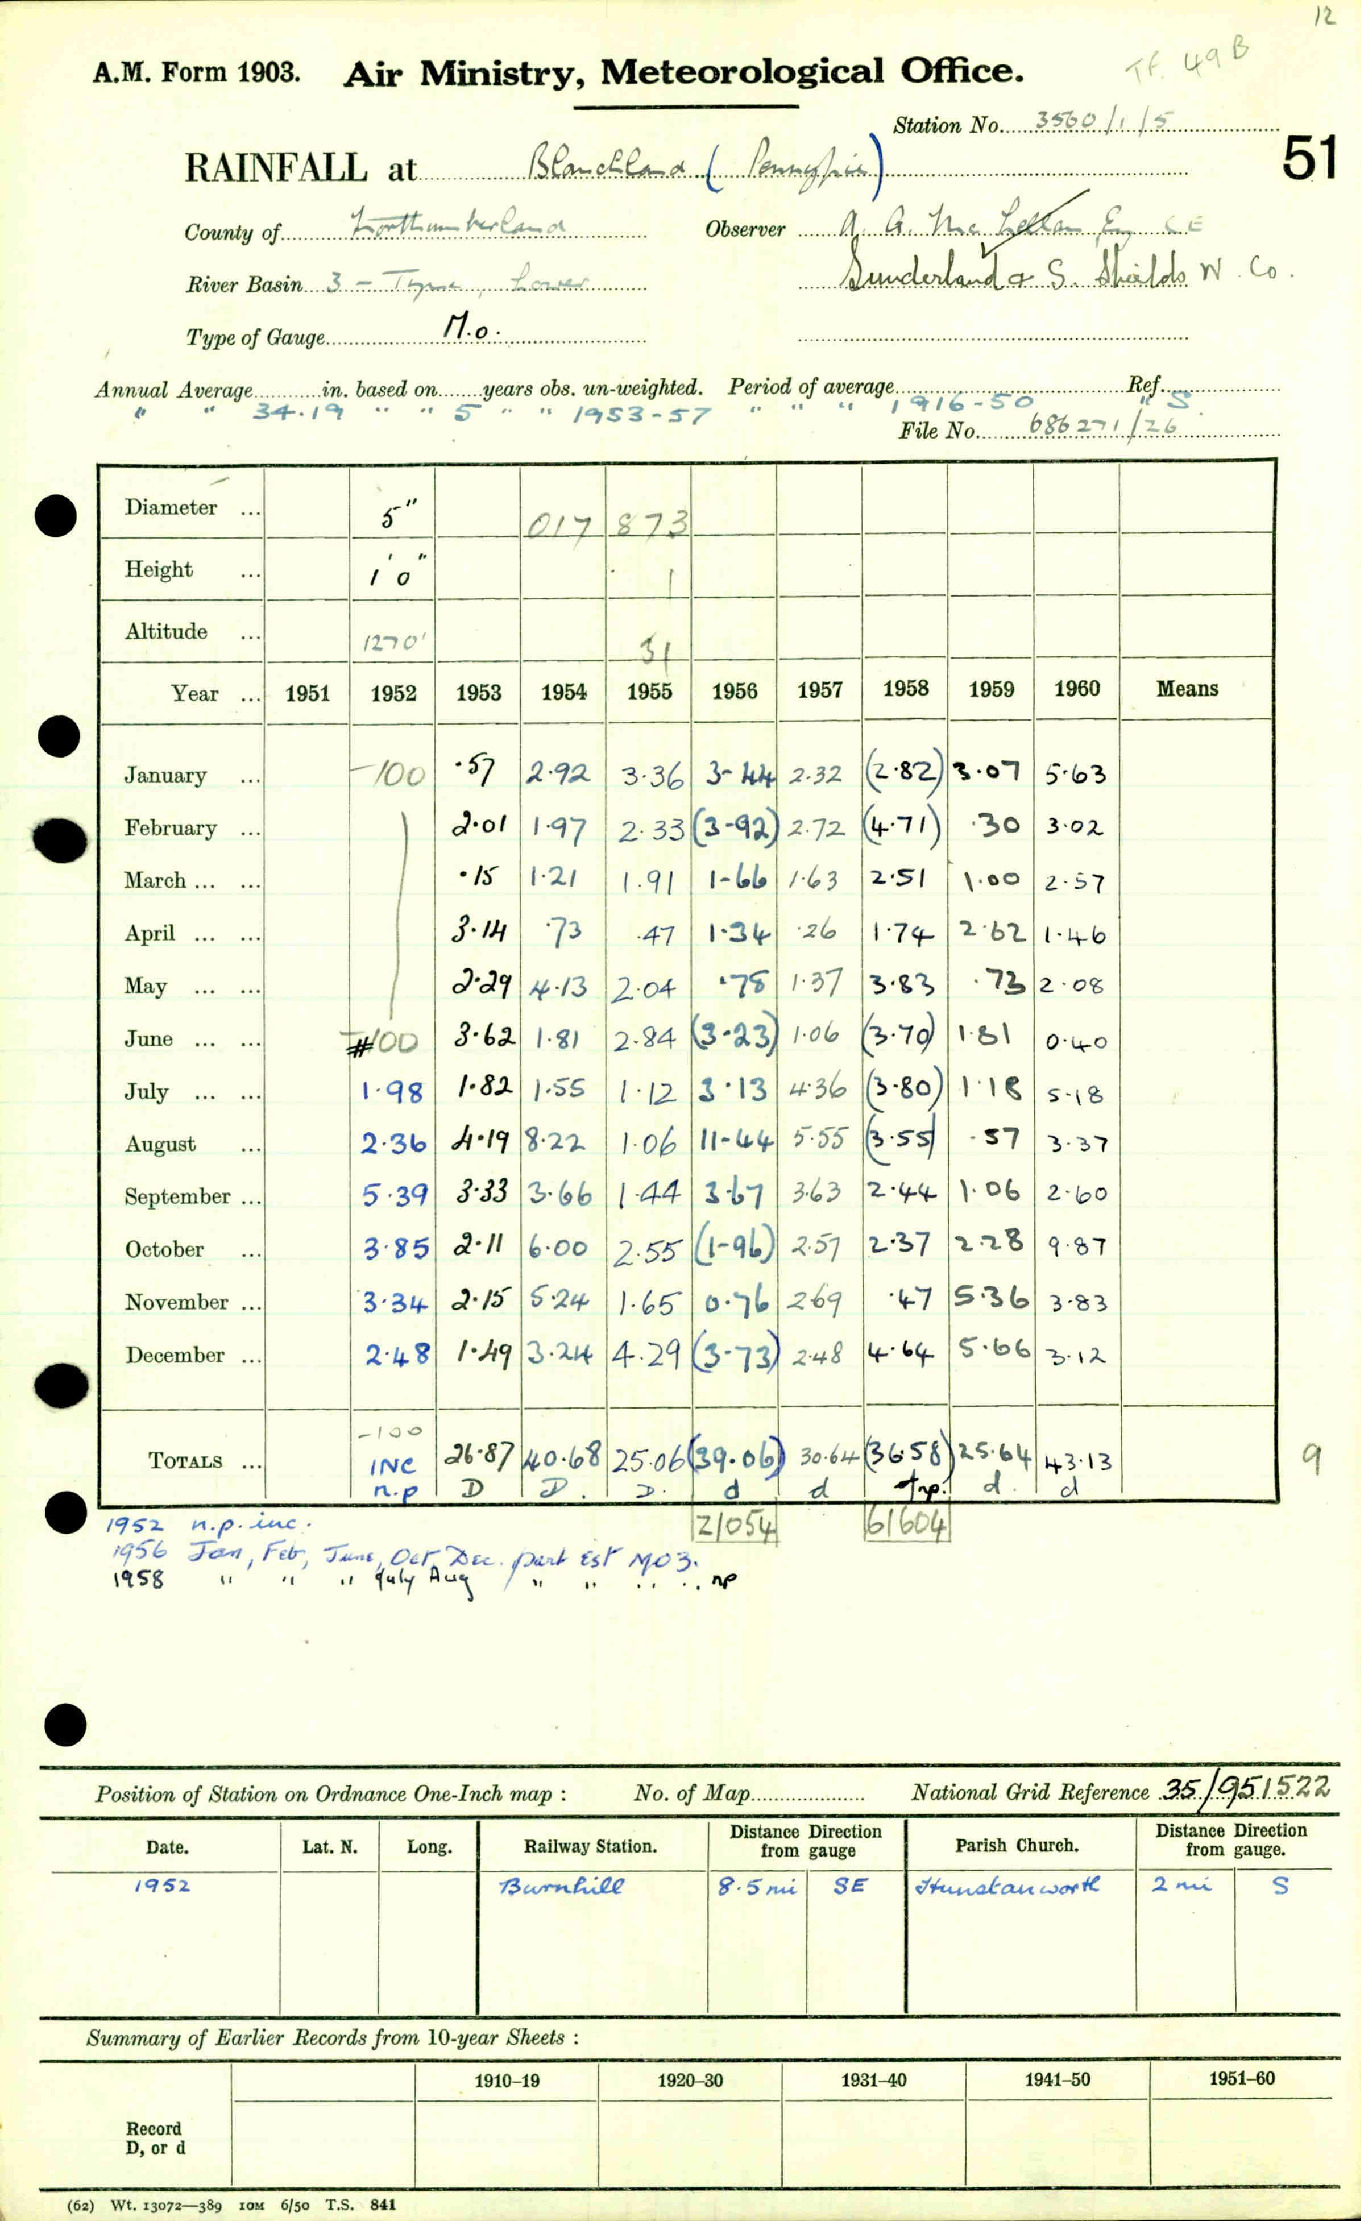 12
A.M. Form 1903. Air Ministry, Meteorological Office. Tf. 49B
Station No. 3560/1/5
RAINFALL at Blanchland (Pennypie) 51
County of Northumberland Observer A. G. Mc Lellan, Esq CE
River Basin 3 - Tyne, Lower Sunderland & S. Shields W. Co.
Type of Gauge M.O.
Annual Average in. based on years obs. un-weighted. Period of average Ref.
" " 34.19 " " 5 " " 1953-57 " " " 1916-50 " S
File No. 686271/26
Diameter ... 5" 017 873
Height ... 1' 0" 1
Altitude ... 1270' 31
Year ... 1951 1952 1953 1954 1955 1956 1957 1958 1959 1960 Means
January ... -100 .57 2.92 3.36 3-44 2.32 (2.82) 3.07 5.63
February ... 2.01 1.97 2.33 (3-92) 2.72 (4.71) .30 3.02
March ... ... .15 1.21 1.91 1-66 1.63 2.51 1.00 2.57
April ... ... 3.14 .73 .47 1.34 .26 1.74 2.62 1.46
May ... ... 2.29 4.13 2.04 .78 1.37 3.83 .73 2.08
June ... ... -100 3.62 1.81 2.84 (3.23) 1.06 (3.70) 1.81 0.40
July ... ... 1.98 1.82 1.55 1.12 3.13 4.36 (3.80) 1.18 5.18
August ... 2.36 4.19 8.22 1.06 11-44 5.55 (3.55) .57 3.37
September ... 5.39 3.33 3.66 1.44 3.67 3.63 2.44 1.06 2.60
October ... 3.85 2.11 6.00 2.55 (1-96) 2.57 2.37 2.28 9.87
November ... 3.34 2.15 5.24 1.65 0.76 2.69 .47 5.36 3.83
December ... 2.48 1.49 3.24 4.29 (3-73) 2.48 4.64 5.66 3.12
-100
TOTALS ... INC 26.87 40.68 25.06 (39.06) 30.64 (36.58) 25.64 43.13 9
n.p D D. D. d d np. d. d
21054 61604
1952 n.p. inc.
1956 Jan, Feb, June, Oct, Dec. part Est MO3.
1958 " " " July Aug " " " " np
Position of Station on Ordnance One-Inch map : No. of Map National Grid Reference 35/951522
Date. Lat. N. Long. Railway Station. Distance from Direction gauge Parish Church. Distance from Direction gauge.
1952 Burnhill 8.5 mi SE Hunstanworth 2 mi S
Summary of Earlier Records from 10-year Sheets :
1910–19 1920–30 1931–40 1941–50 1951–60
Record
D, or d
(62) Wt. 13072—389 10M 6/50 T.S. 841